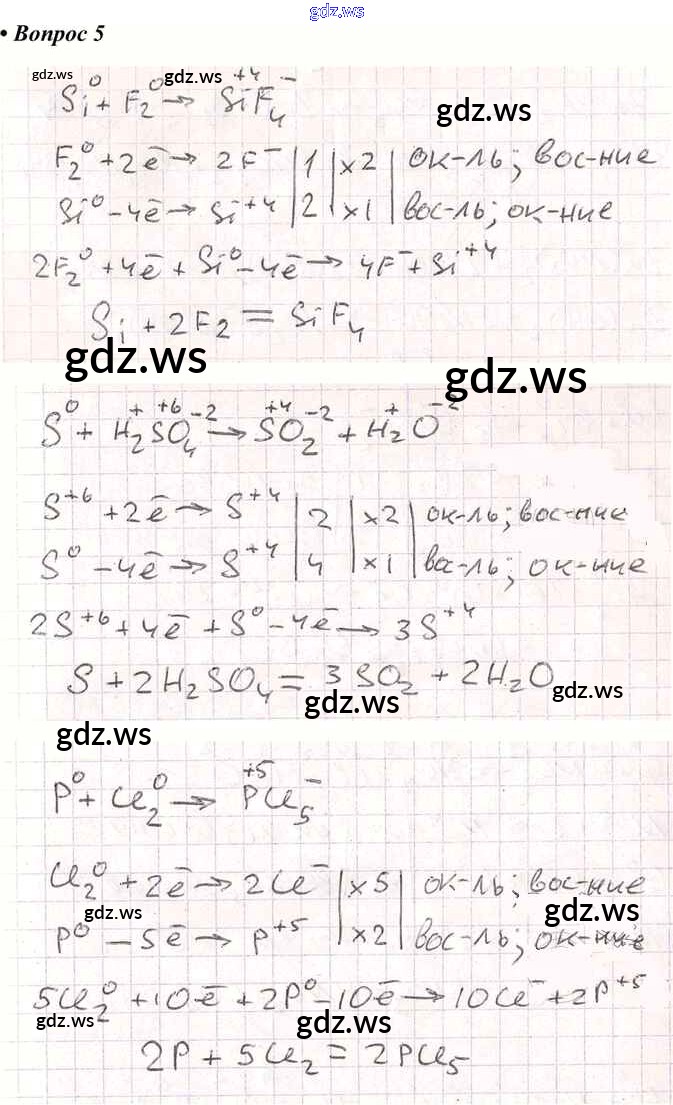 gdz.ws
• Вопрос 5
gdz.ws gdz.ws gdz.ws
Si⁰ + F₂⁰ → Si⁺⁴F₄⁻
F₂⁰ + 2ē → 2F⁻ | 1 | ×2 | ок-ль; вос-ние
Si⁰ – 4ē → Si⁺⁴ | 2 | ×1 | вос-ль; ок-ние
2F₂⁰ + 4ē + Si⁰ – 4ē → 4F⁻ + Si⁺⁴
Si + 2F₂ = SiF₄
gdz.ws gdz.ws
S⁰ + H₂⁺S⁺⁶O₄⁻² → S⁺⁴O₂⁻² + H₂⁺O⁻²
S⁺⁶ + 2ē → S⁺⁴ | 2 | ×2 | ок-ль; вос-ние
S⁰ – 4ē → S⁺⁴ | 4 | ×1 | вос-ль; ок-ние
2S⁺⁶ + 4ē + S⁰ – 4ē → 3S⁺⁴
S + 2H₂SO₄ = 3SO₂ + 2H₂O
gdz.ws gdz.ws
gdz.ws
P⁰ + Cl₂⁰ → P⁺⁵Cl₅⁻
Cl₂⁰ + 2ē → 2Cl⁻ | ×5 | ок-ль; вос-ние
gdz.ws gdz.ws
P⁰ – 5ē → P⁺⁵ | ×2 | вос-ль; ок-ние
5Cl₂⁰ + 10ē + 2P⁰ – 10ē → 10Cl⁻ + 2P⁺⁵
gdz.ws gdz.ws
2P + 5Cl₂ = 2PCl₅